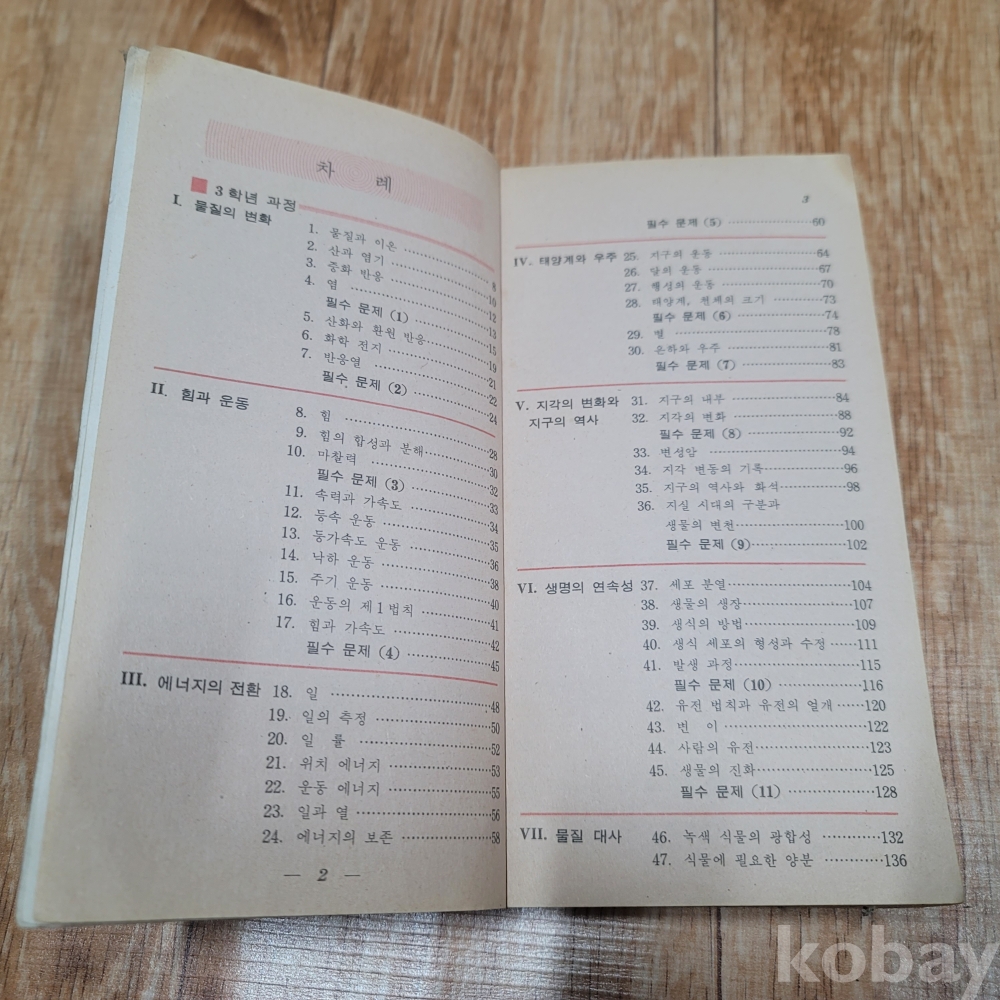 차 례
3학년 과정
I. 물질의 변화
1. 물질과 이온 ……… 8
2. 산과 염기 ……… 10
3. 중화 반응 ……… 12
4. 염 ……… 13
필수 문제 (1) ……… 15
5. 산화와 환원 반응 ……… 19
6. 화학 전지 ……… 21
7. 반응열 ……… 22
필수 문제 (2) ……… 24
II. 힘과 운동
8. 힘 ……… 28
9. 힘의 합성과 분해 ……… 30
10. 마찰력 ……… 32
필수 문제 (3) ……… 33
11. 속력과 가속도 ……… 34
12. 등속 운동 ……… 35
13. 등가속도 운동 ……… 36
14. 낙하 운동 ……… 38
15. 주기 운동 ……… 40
16. 운동의 제1법칙 ……… 41
17. 힘과 가속도 ……… 42
필수 문제 (4) ……… 45
III. 에너지의 전환 18. 일 ……… 48
19. 일의 측정 ……… 50
20. 일 률 ……… 52
21. 위치 에너지 ……… 53
22. 운동 에너지 ……… 55
23. 일과 열 ……… 56
24. 에너지의 보존 ……… 58
— 2 —
3
필수 문제 (5) ……… 60
IV. 태양계와 우주 25. 지구의 운동 ……… 64
26. 달의 운동 ……… 67
27. 행성의 운동 ……… 70
28. 태양계, 천체의 크기 ……… 73
필수 문제 (6) ……… 74
29. 별 ……… 78
30. 은하와 우주 ……… 81
필수 문제 (7) ……… 83
V. 지각의 변화와 31. 지구의 내부 ……… 84
지구의 역사 32. 지각의 변화 ……… 88
필수 문제 (8) ……… 92
33. 변성암 ……… 94
34. 지각 변동의 기록 ……… 96
35. 지구의 역사와 화석 ……… 98
36. 지질 시대의 구분과
생물의 변천 ……… 100
필수 문제 (9) ……… 102
VI. 생명의 연속성 37. 세포 분열 ……… 104
38. 생물의 생장 ……… 107
39. 생식의 방법 ……… 109
40. 생식 세포의 형성과 수정 ……… 111
41. 발생 과정 ……… 115
필수 문제 (10) ……… 116
42. 유전 법칙과 유전의 얼개 ……… 120
43. 변 이 ……… 122
44. 사람의 유전 ……… 123
45. 생물의 진화 ……… 125
필수 문제 (11) ……… 128
VII. 물질 대사 46. 녹색 식물의 광합성 ……… 132
47. 식물에 필요한 양분 ……… 136
kobay